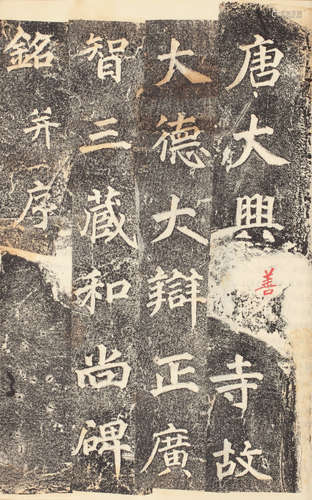 唐大興善寺故
大德大辯正廣
智三藏和尚碑
銘并序